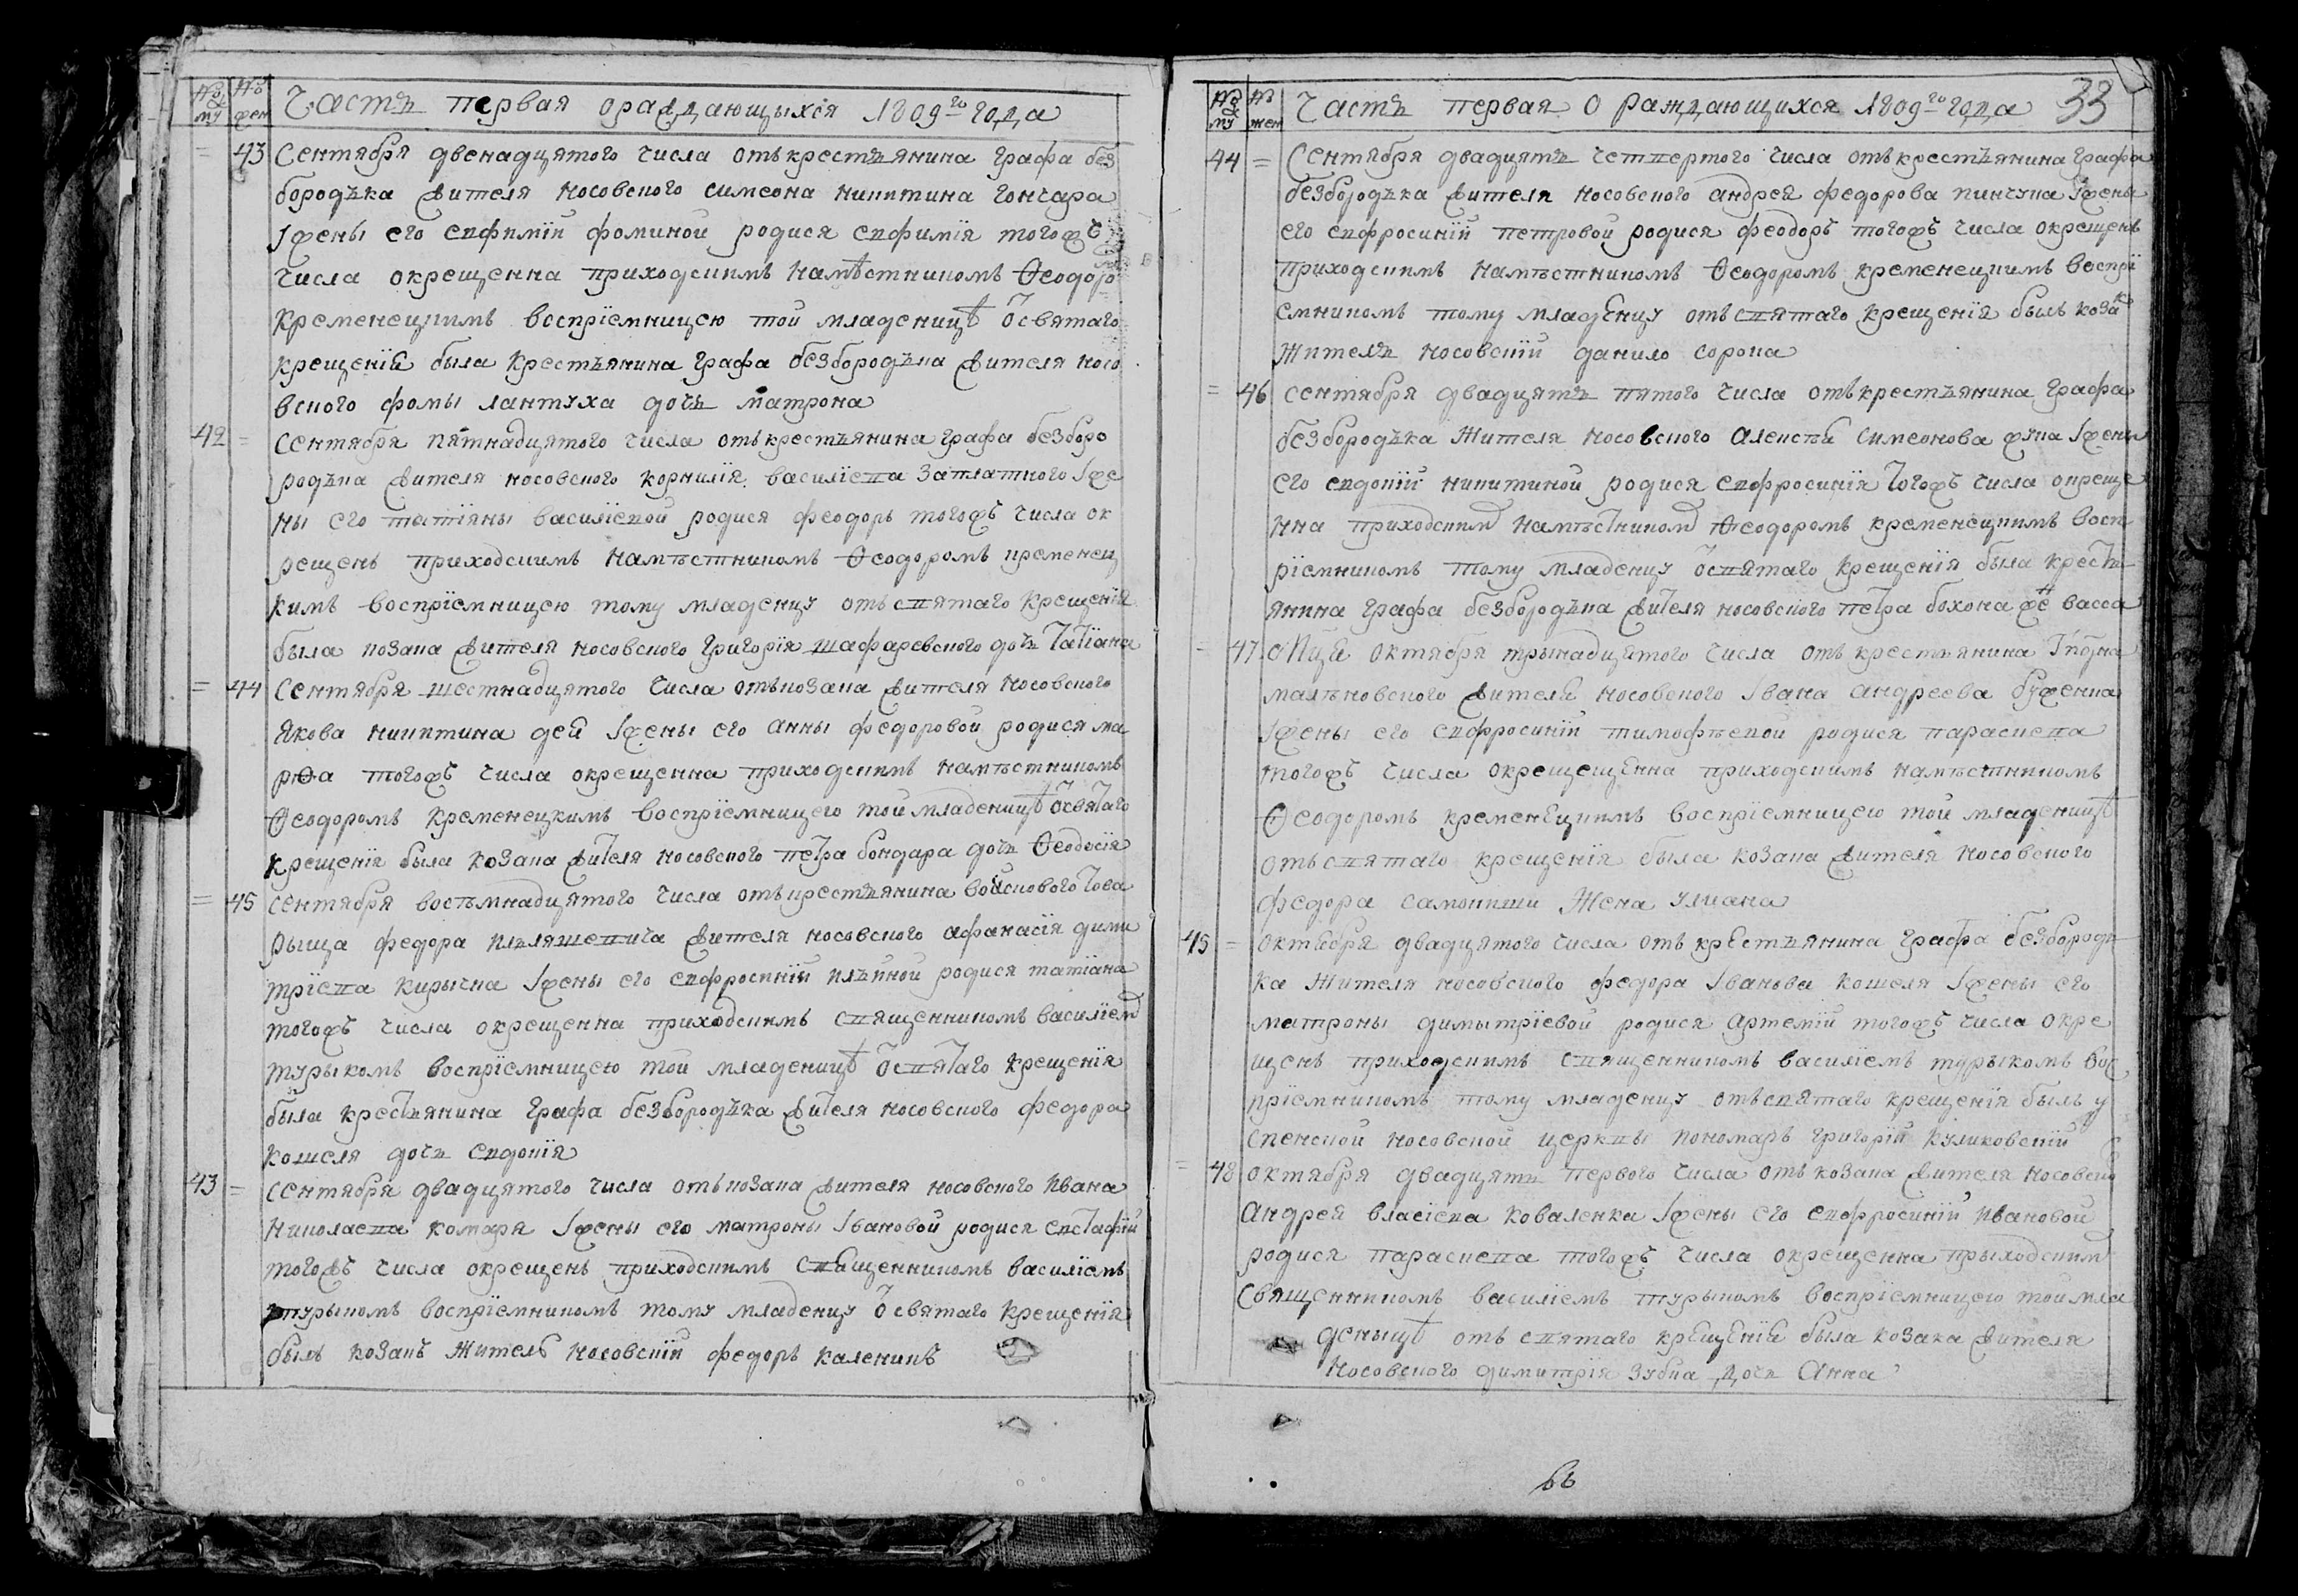 № му № жен Часть первая ораждающыхся 1809го года
= 43 Сентября двенадцятого числа отъ крестьянина Графа без
бородька жителя носовского симеона никитина гончара
Iжены его евфиміи фоминой родися евфимія тогожъ
числа окрещенна приходскимъ намѣстникомъ Ѳеодоро
кременецкимъ воспріемницею той младеницѣ ѿ святаго
крещенія была крестьянина графа безбородька жителя носо
вского фомы лантуха дочь матрона
42 = Сентября пятнадцятого числа отъ крестьянина графа безборо
родька жителя носовского корнилія василіева Затлатного Iже
ны его татіяны василіевой родися феодоръ тогожъ числа ок
рещенъ приходскимъ намѣстникомъ Ѳеодоромъ кременец
кимъ воспріемницею тому младенцу отъ святаго крещенія
была козака жителя носовского григорія шафаревского дочь Татіана
= 44 Сентября шестнадцятого числа отъ козака жителя носовского
Якова никитина дея Iжены его анны федоровой родися ма
рѳа тогожъ числа окрещенна приходскимъ намѣстникомъ
Ѳеодоромъ кременецкимъ воспріемницего той младеницѣ ѿ святаго
крещенія была козака жителя носовского петра бондара дочь Ѳеодосія
= 45 Сентября востьмнадцятого числа отъ крестьянина войскового това
рыща федора илляшевича жителя носовского афанасія дими
тріева кирычка Iжены его евфросиніи ильиной родися татіана
тогожъ числа окрещенна приходскимъ священникомъ василіем
турыкомъ воспріемницею той младеницѣ ѿ святаго крещенія
была крестьянина графа безбородька жителя носовского федора
кошеля дочь евдокія
43 = Сентября двадцятого числа отъ козака жителя носовского Ивана
николаева комаря Iжены его матроны Iвановой родися евстафій
тогожъ числа окрещенъ приходскимъ священникомъ василіемъ
турыкомъ воспріемникомъ тому младенцу ѿ святаго крещенія
былъ козакъ житель носовскій федоръ каленикъ
№ му № жен Часть первая О раждающихся 1809го года 33
44 = Сентября двадцять четвертого числа отъ крестьянина графа
безбородька жителя носовского андрея федорова пинчука Iжены
его евфросиніи петровой родися феодоръ тогожъ числа окрещенъ
приходскимъ намѣстникомъ Ѳеодоромъ кременецкимъ воспрі
емникомъ тому младенцу отъ святаго крещенія былъ козак
житель носовскій данило сорока
= 46 сентября двадцять пятого числа отъ крестьянина графа
безбородька жителя носовского алексѣя симеонова Iжены
его евдокіи никитиной родися евфросинія тогожъ числа окреще
нна приходским намѣстником Ѳеодоромъ кременецкимъ восп
ріемникомъ тому младенцу ѿ святаго крещенія была кресть
янина графа безбородька жителя носовского петра бохона же васса
= 47 Октября трынадцятого числа отъ крестьянина
маляновского жителя носовского Iвана андреева буженка
Iжены его евфросиніи тимофѣевой родися параскева
тогожъ числа окрещещенна приходскимъ намѣстникомъ
Ѳеодоромъ кременецкимъ воспріемницею той младеницѣ
отъ святаго крещенія была козака жителя носовского
федора самокиши жена улиана
45 = Октября двадцятого числа отъ крестьянина графа безбородь
ка жителя носовского федора Iванова кошеля Iжены его
матроны димытріевой родися артемій тогожъ числа окре
щенъ приходскимъ священникомъ василіемъ турыкомъ вос
пріемникомъ тому младенцу отъ святаго крещенія былъ у
спенской носовской церквы пономарь григорій куликовскій
= 48 октября двадцять первого числа отъ козака жителя носовско
андрея власіева коваленка Iжены его евфросиніи Ивановой
родися параскева тогожъ числа окрещенна прыходским
священникомъ василіемъ турыкомъ воспріемницею той мла
деныцѣ отъ святаго крещенія была козака жителя
носовского димитрія зубка дочь Анна
66